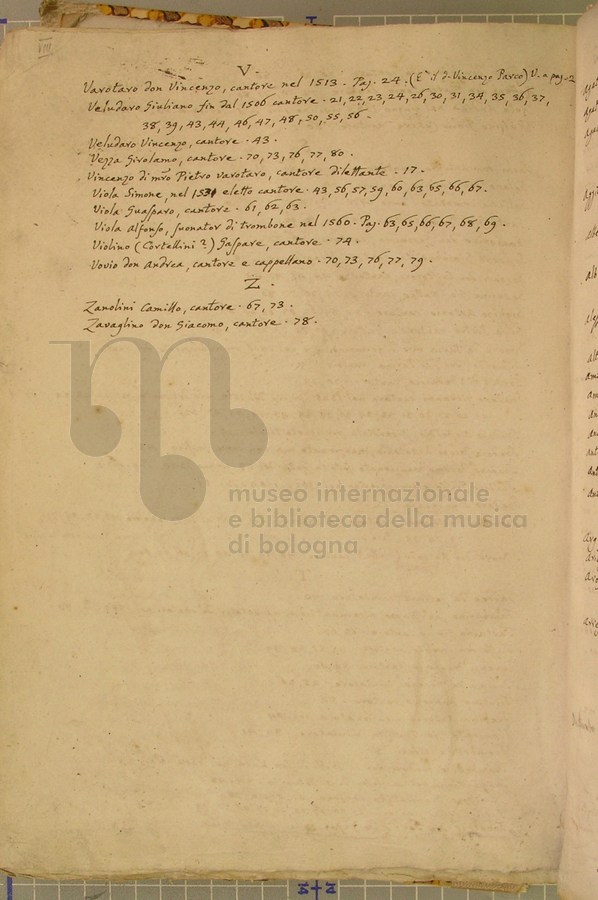 VIII
V.
Varotaro don Vincenzo, cantore nel 1513 - Pag. 24. (E' il d. Vincenzo Parco) V. a pag. 2
Veludaro Giuliano fin dal 1506 cantore - 21, 22, 23, 24, 26, 30, 31, 34, 35, 36, 37,
38, 39, 43, 44, 46, 47, 48, 50, 55, 56 -
Veludaro Vincenzo, cantore - 43.
Vezza Girolamo, cantore - 70, 73, 76, 77, 80.
Vincenzo di mro Pietro varotaro, cantore dilettante - 17.
Viola Simone, nel 1531 eletto cantore - 43, 56, 57, 59, 60, 63, 65, 66, 67.
Viola Guasparo, cantore - 61, 62, 63.
Viola Alfonso, suonator di trombone nel 1560 - Pag. 63, 65, 66, 67, 68, 69.
Violino (Cortellini?) Gaspare, cantore - 74.
Vovio don Andrea, cantore e cappellano - 70, 73, 76, 77, 79.
Z.
Zanolini Camillo, cantore - 67, 73.
Zavaglino don Giacomo, cantore - 78.
museo internazionale
e biblioteca della musica
di bologna